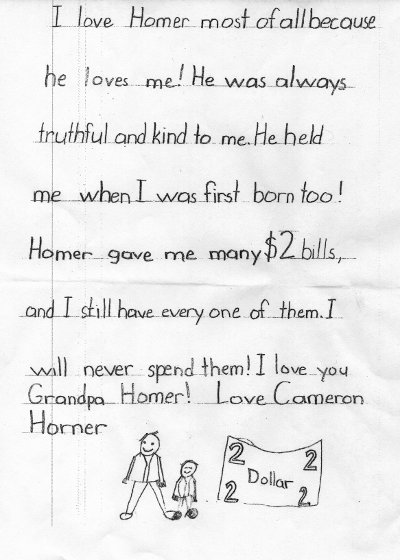 I love Homer most of all because
he loves me! He was always
truthful and kind to me. He held
me when I was first born too!
Homer gave me many $2 bills,
and I still have every one of them. I
will never spend them! I love you
Grandpa Homer! Love Cameron
Horner
2 2
Dollar
2 2